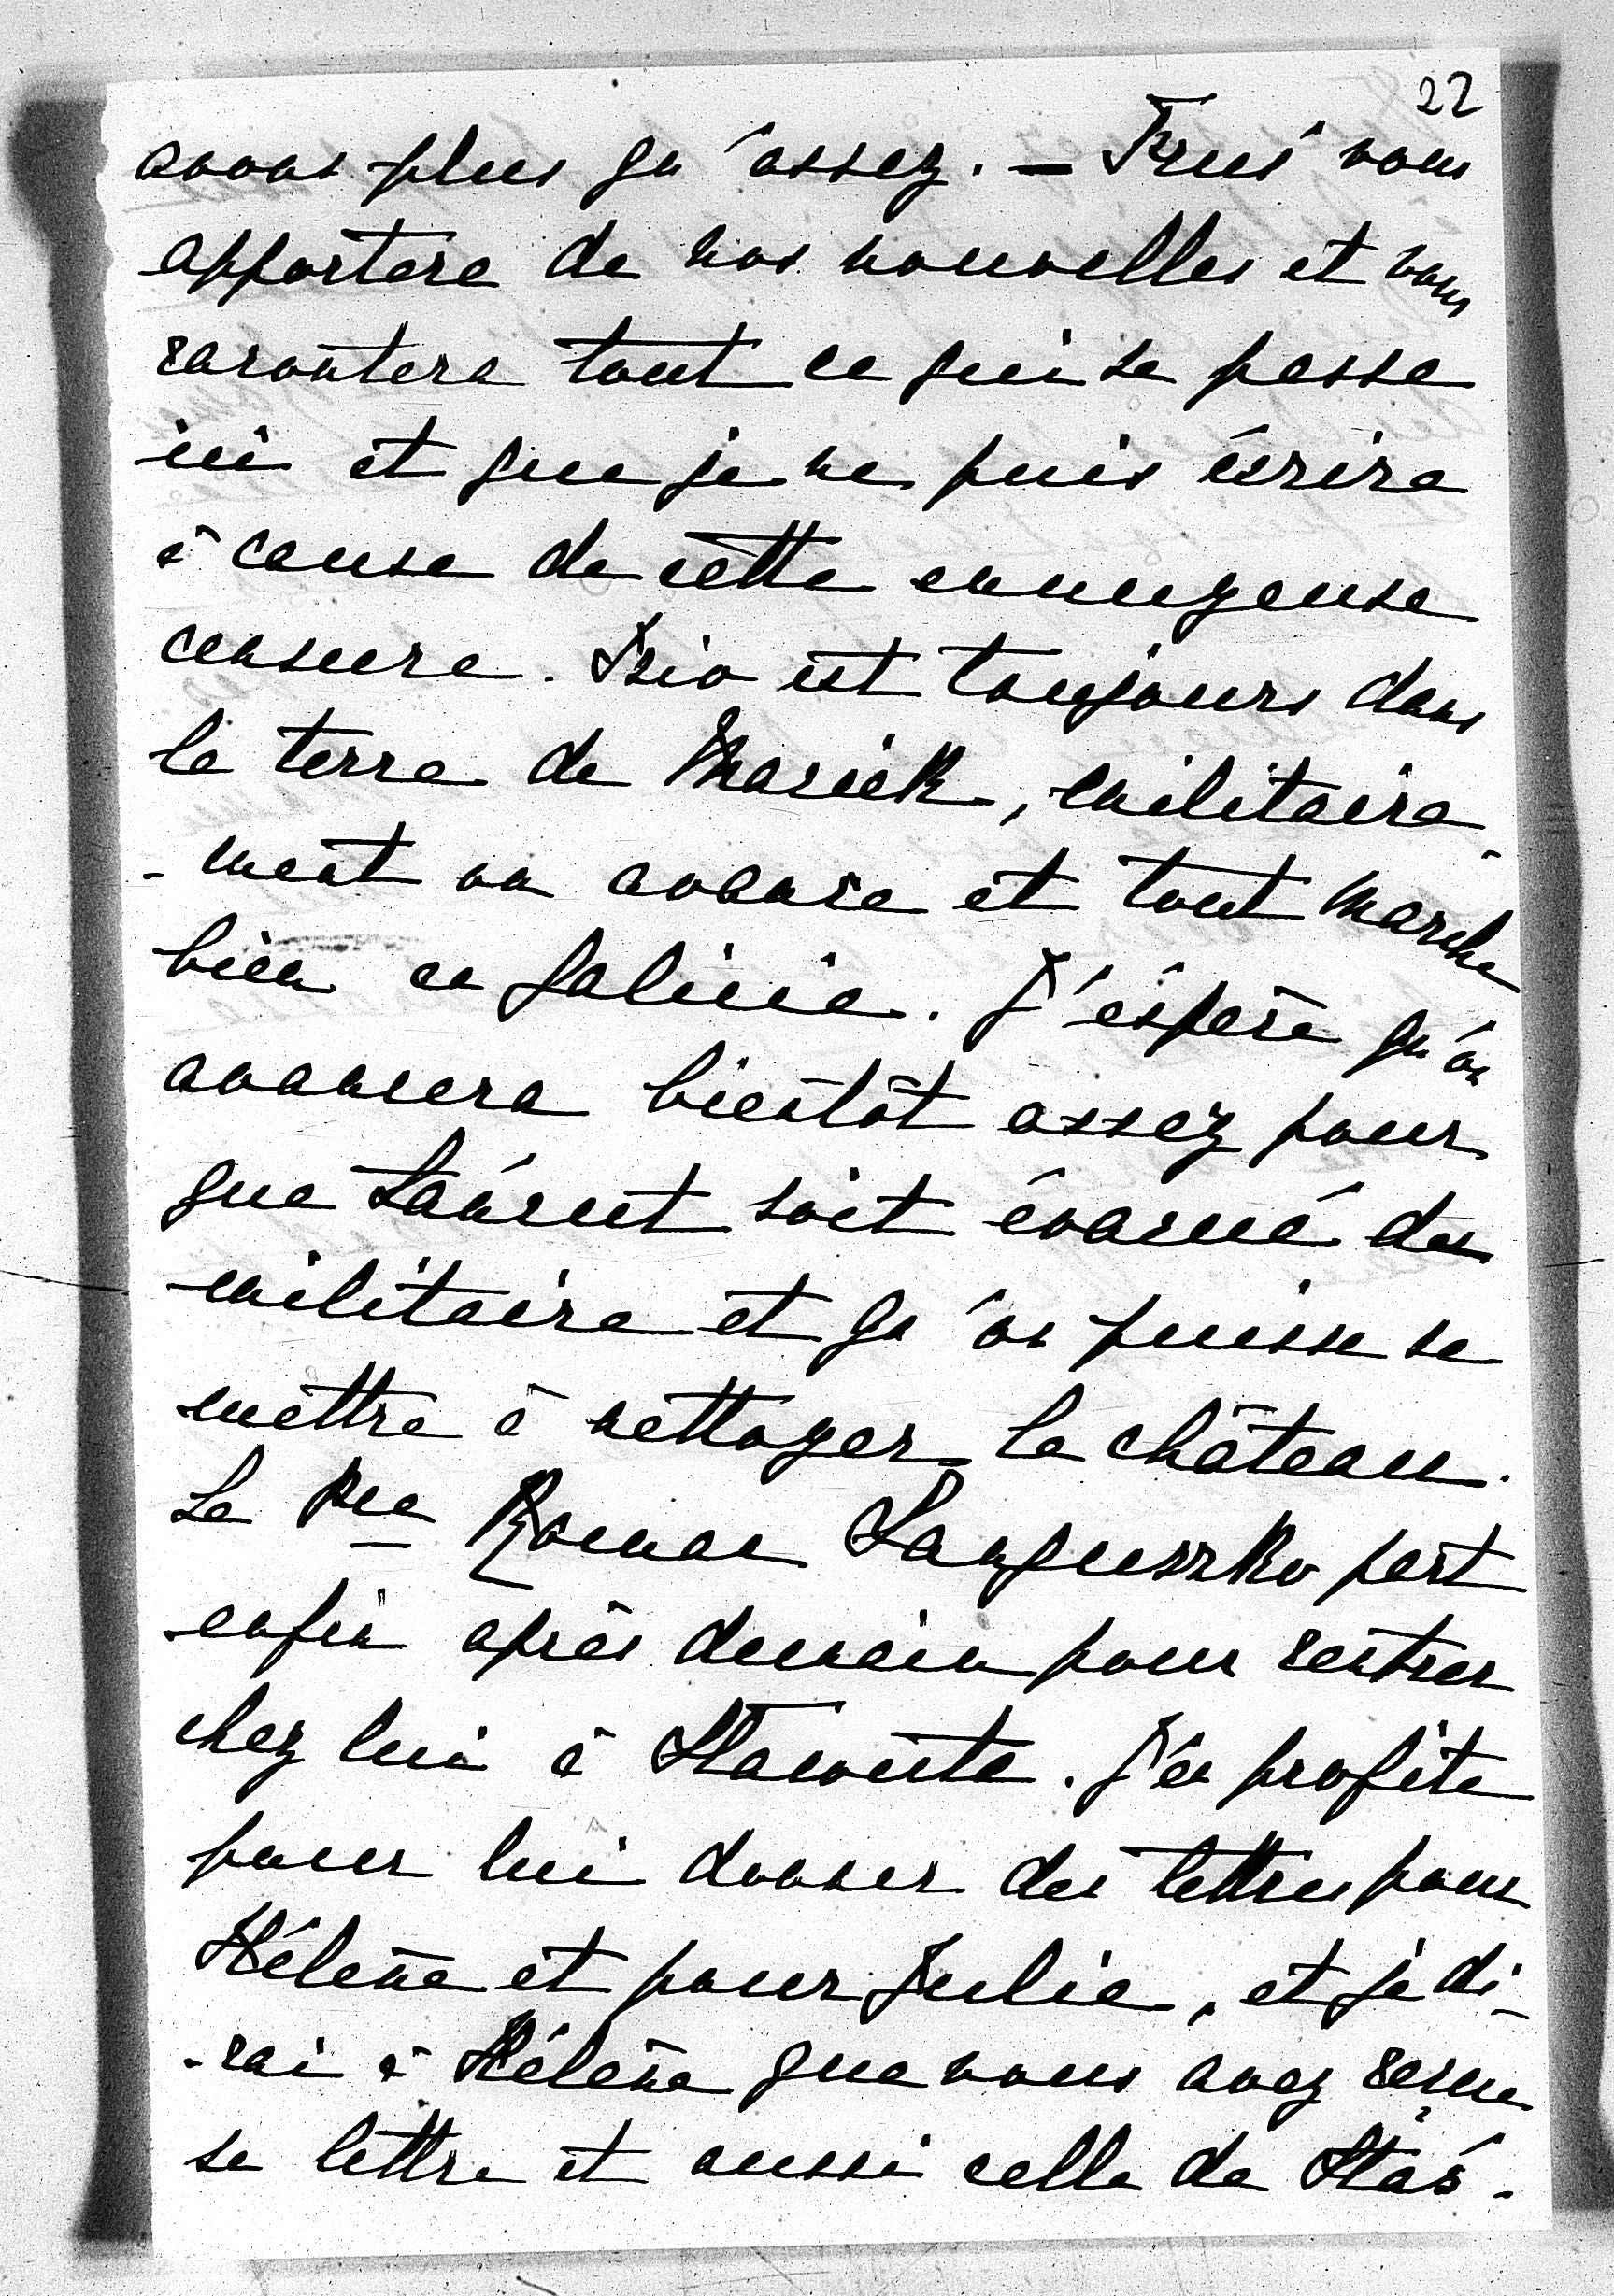 22
avons plus qu'assez. — Kruś vous
apportera de nos nouvelles et vous
racontera tout ce qui se passe
ici et que je ne puis écrire
à cause de cette ennuyeuse
censure. Izio est toujours dans
la terre de Maniek, militaire-
-ment on avance et tout marche
bien en Galicie. J'éspère qu'on
avancera bientôt assez pour
que Łańcut soit évacué du
militaire et qu'on puisse se
mettre à nettoyer le château.
Le Pce Roman Sanguszko part
enfin après demain pour rentrer
chez lui à Slawuta. J'en profite
pour lui donner des lettres pour
Hélène et pour Julie, et je di-
-rai à Hélène que vous avez reçue
sa lettre et aussi celle de Staś.